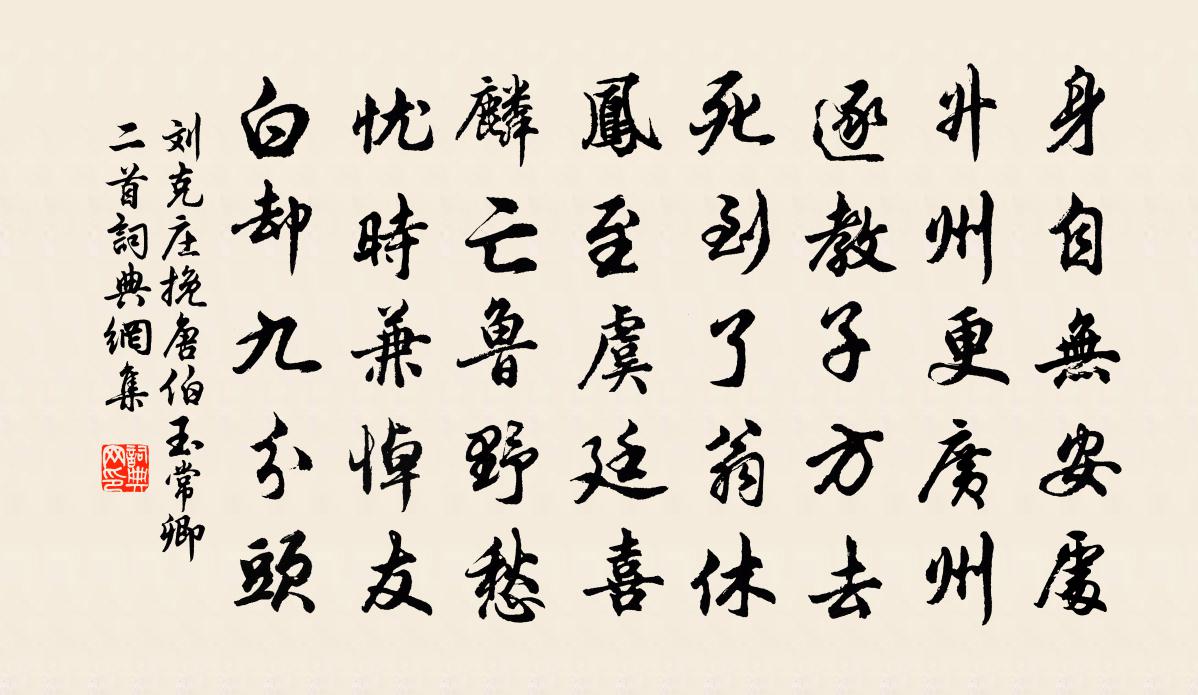 身自無安處
升州更廣州
逐教子方去
死到了翁休
鳳至虞廷喜
麟亡魯野愁
忧時兼悼友
白却九分頭
刘克庄挽唐伯玉常卿
二首詞典網集
詞典
网印